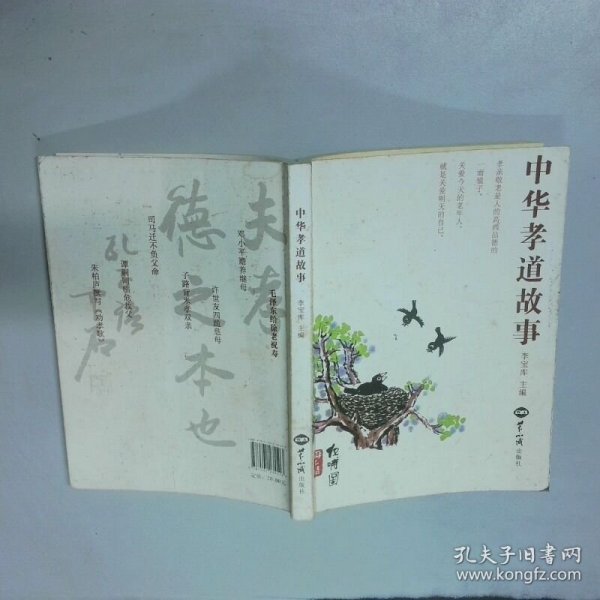 中华孝道故事
李宝库 主编
孝亲敬老是人的高尚品德的
一面镜子，
关爱今天的老年人，
就是关爱明天的自己。
反哺图
世界知识出版社
中华孝道故事
李宝库 主编
世界知识出版社
夫孝
德之本也
孔子语
毛泽东给徐老祝寿
邓小平赡养继母
许世友四跪慈母
子路背米孝双亲
司马迁不负父命
定价：28.00元
孔夫子旧书网
www.kongfz.com